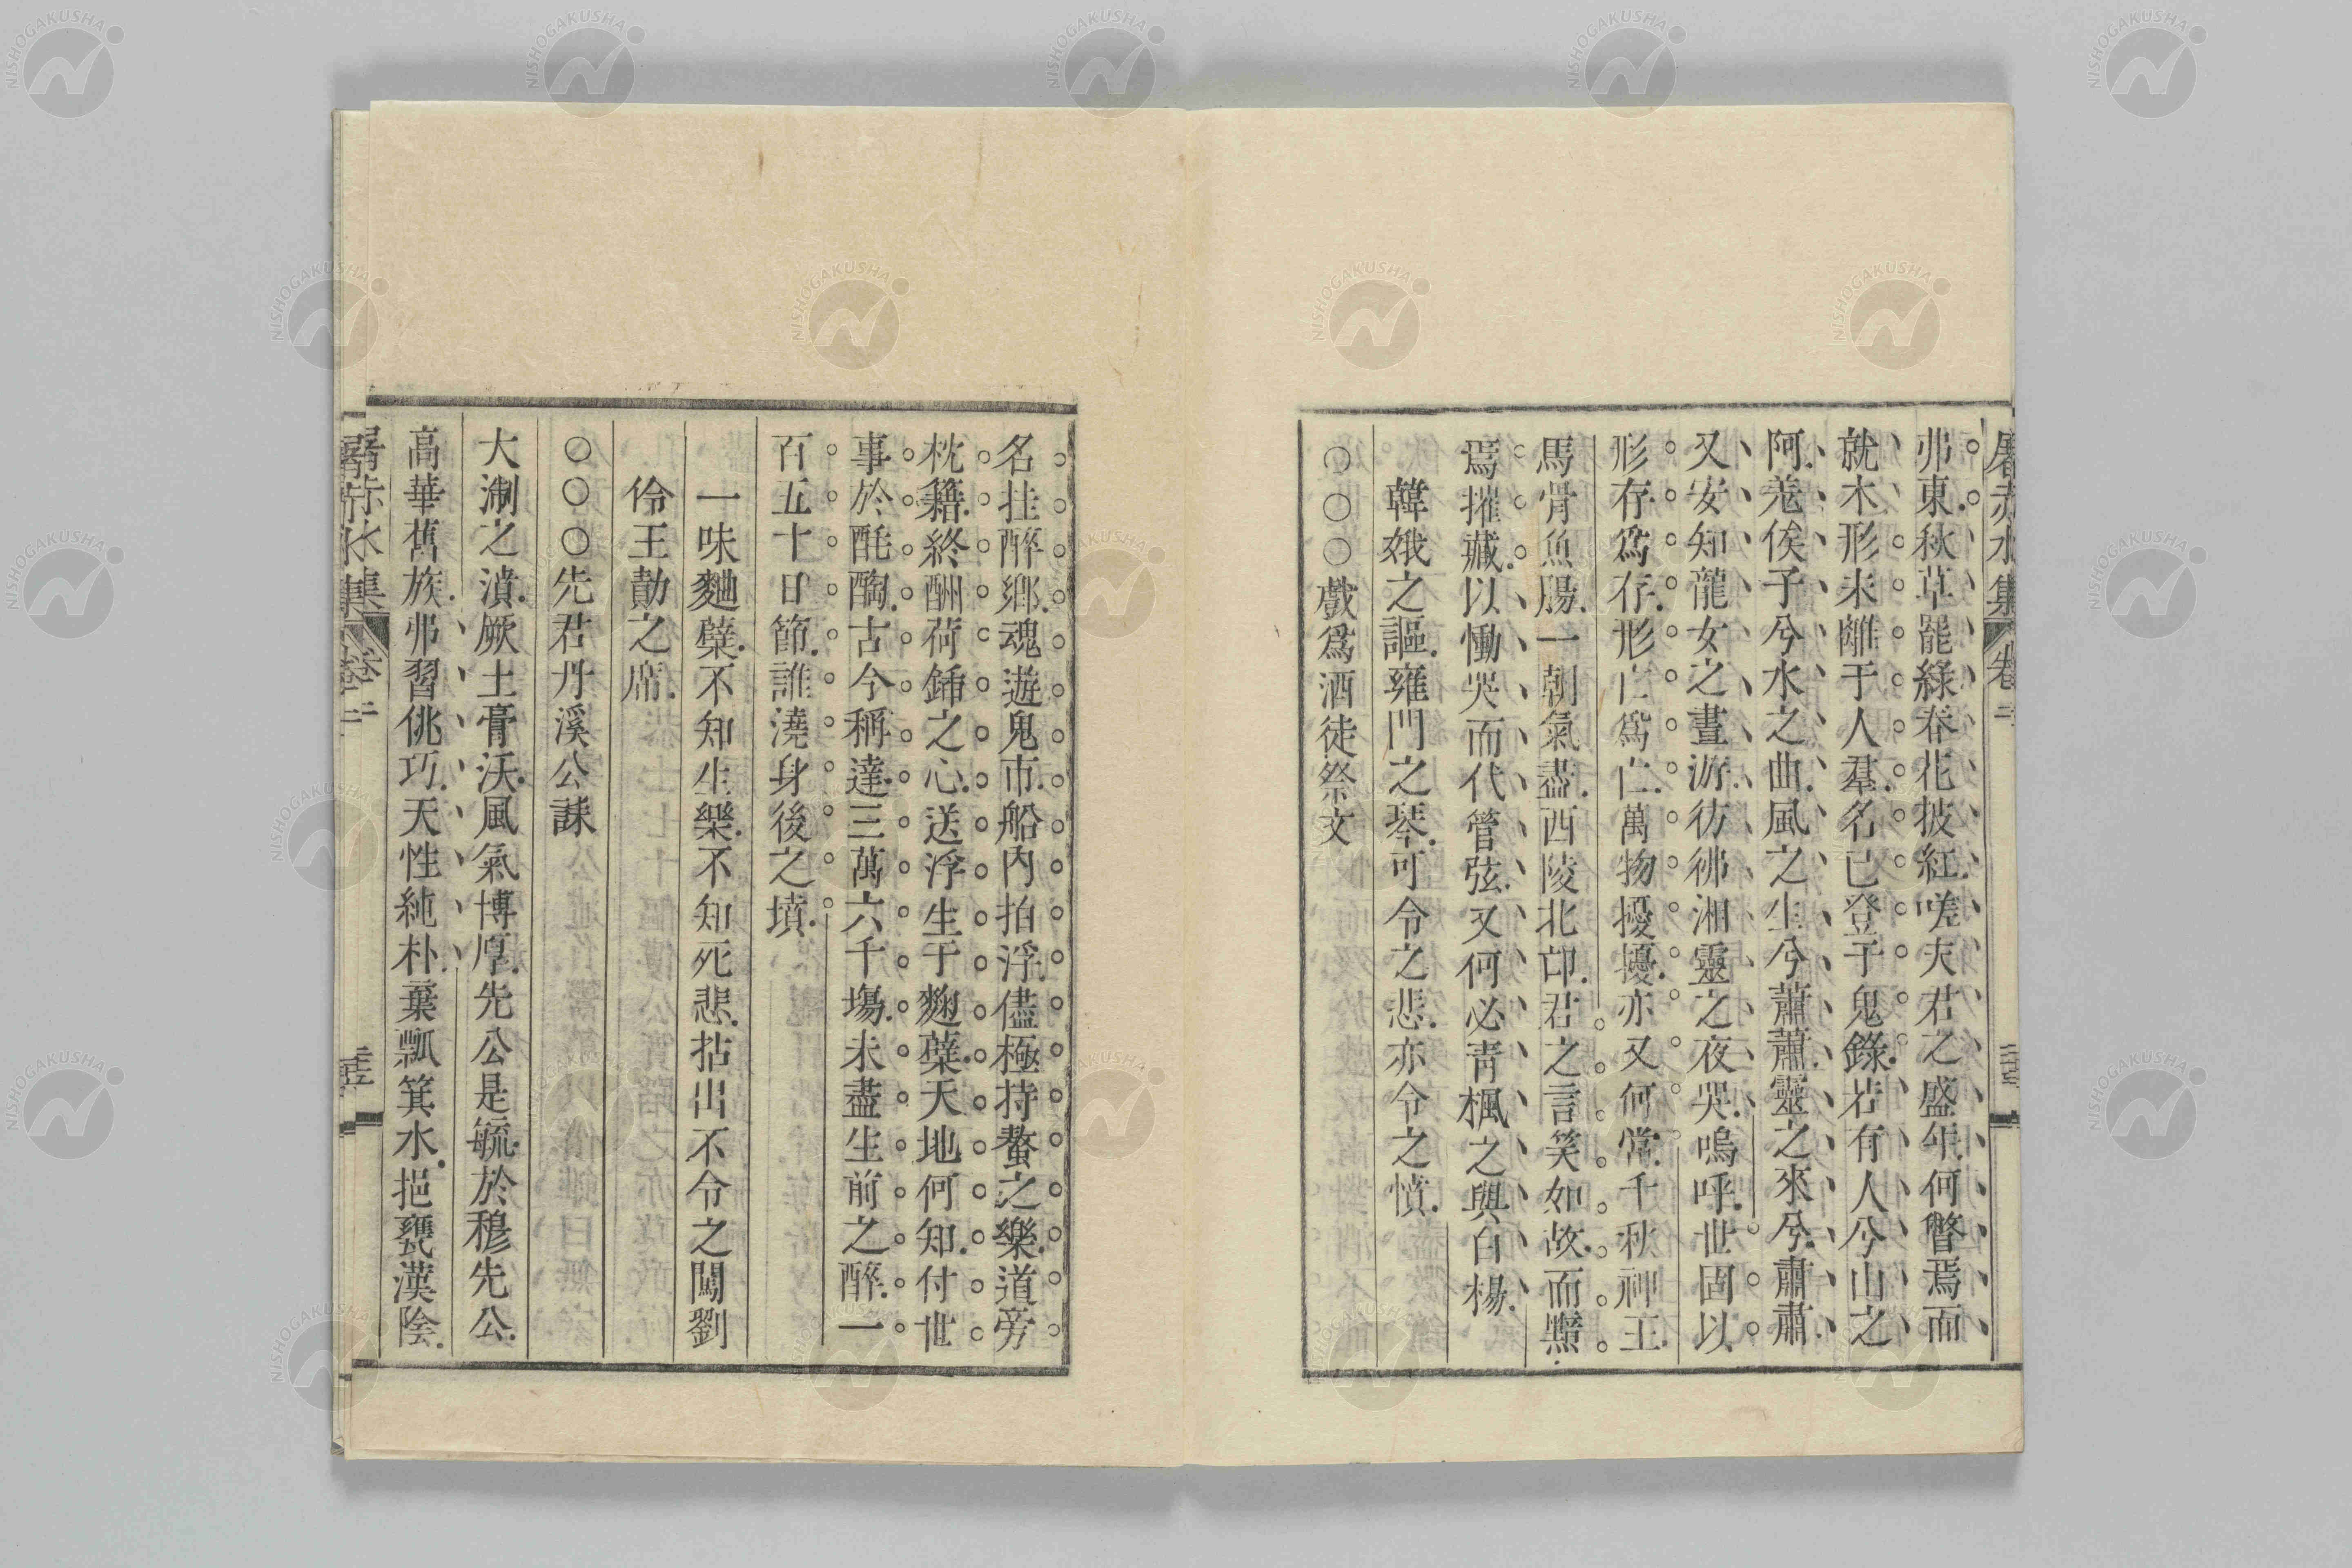 屠赤水集 卷二
弗東.秋草罷綠.春花披紅.嗟夫君之盛年.何瞥焉而
就木.形未離于人羣.名已登于鬼錄.若有人兮山之
阿.羌俟予兮水之曲.風之生兮蕭蕭.靈之來兮.肅肅.
又安知龍女之晝游.彷彿湘靈之夜哭.嗚呼.世固以
形存爲存.形亡爲亡.萬物擾擾.亦又何常.千秋神王.
馬骨魚腸.一朝氣盡.西陵北邙.君之言笑如故.而黯
焉摧藏.以慟哭而代管弦.又何必靑楓之與白楊.
韓娥之謳.雍門之琴.可令之悲.亦令之憤.
○○○戲爲酒徒祭文
名挂醉鄉.魂遊鬼市.船內拍浮.儘極持螯之樂.道旁
枕籍.終酬荷鍤之心.送浮生于麴蘗.天地何知.付世
事於酕醄.古今稱達.三萬六千塲.未盡生前之醉.一
百五十日節.誰澆身後之墳.
一味麯糵.不知生樂.不知死悲.拈出不令之闖劉
伶王勣之席.
○○○先君丹溪公誄
大淛之濆.厥土膏沃.風氣博厚.先公是毓.於穆先公.
高華舊族.弗習佻巧.天性純朴.棄瓢箕水.挹甕漢陰.
屠赤水集 卷二